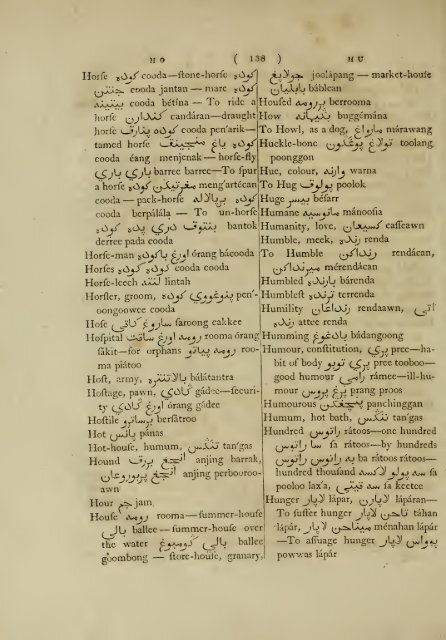 H O ( 138 ) H U
Horſe كوده cooda—ſtone-horſe كوده
جنتن cooda jantan — mare كوده
بيتينه cooda bétina — To ride a
horſe كندارن candáran—draught
horſe كوده پنارق cooda pen'arik—
tamed horſe كوده يڠ منجينق
cooda éang menjenak — horſe-fly
باري باري barree barree—To ſpur
a horſe مڠرتيكن كوده meng'artécan
cooda — pack-horſe كوده برپالاله
cooda berpálála — To un-horſe
بنتوق دري پد كوده bantok
derree pada cooda
Horſe-man اورڠ باكوده órang bácooda
Horſes كوده كوده cooda cooda
Horſe-leech لنته lintah
Horſler, groom, پنوڠووي كوده pen'-
oongoowee cooda
Hoſe ساروڠ كاكي ſaroong cakkee
Hoſpital رومه اورڠ ساكت rooma órang
ſákit—for orphans رومه پياتو roo-
ma piátoo
Hoſt, army, بالاتنتره bálátantra
Hoſtage, pawn, گادي gádee—ſecuri-
ty اورڠ گادي órang gádee
Hoſtile برساترو berſatroo
Hot پانس pánas
Hot-houſe, humum, تنگس tan'gas
Hound انجڠ برق anjing barrak,
انجڠ پربوروان anjing perbouroo-
awn
Hour جم jam
Houſe رومه rooma—ſummer-houſe
بالي ballee—ſummer-houſe over
the water بالي كومبوڠ ballee
goombong — ſtore-houſe, granary,
جولاپڠ joolápang — market-houſe
بابليان báblean
Houſed بررومه berrooma
How بڬيمانه buggémána
To Howl, as a dog, ماراوڠ márawang
Huckle-bone تولڠ پوڠگون toolang
poonggon
Hue, colour, وارنه warna
To Hug پولوق poolok
Huge بيسر béſarr
Humane مانوسيه mánooſia
Humanity, love, كسيهان caſſeawn
Humble, meek, رنده renda
To Humble رنداكن rendácan,
ميرنداكن mérendácan
Humbled بارنده bárenda
Humbleſt ترنده terrenda
Humility رنداهان rendaawn, اتي
رنده attee renda
Humming بادڠوڠ bádangoong
Humour, conſtitution, پري pree—ha-
bit of body پري توبو pree tooboo—
good humour رامي rámee—ill-hu-
mour پرڠ پروس prang proos
Humourous پنچڠگن panchinggan
Humum, hot bath, تنگس tan'gas
Hundred راتوس rátoos—one hundred
سا راتوس ſa rátoos—by hundreds
به راتوس راتوس ba rátoos rátoos—
hundred thouſand سه پولو لاكسه ſa
pooloo lax'a, سه كيتي ſa keetee
Hunger لاپر lápar, لاپارن lápáran—
To ſuffer hunger تاهن لاپر táhan
lápár, ميناهن لاپر ménahan lápár
—To aſſuage hunger پوواس لاپر
powwas lápár